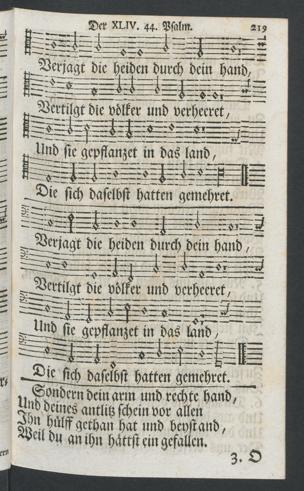 Der XLIV. 44. Psalm. 219
Verjagt die heiden durch dein hand,
Vertilgt die völker und verheeret,
Und sie gepflanzet in das land,
Die sich daselbst hatten gemehret.
Verjagt die heiden durch dein hand,
Vertilgt die völker und verheeret,
Und sie gepflanzet in das land,
Die sich daselbst hatten gemehret.
Sondern dein arm und rechte hand,
Und deines antlitz schein vor allen
Ihn hülff gethan hat und beystand,
Weil du an ihn hättst ein gefallen.
3. O